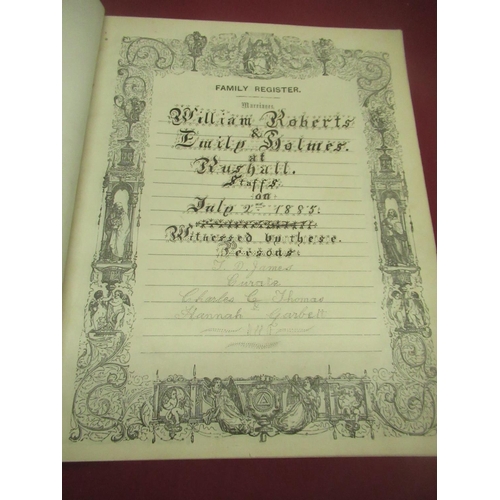 FAMILY REGISTER.
Marriages
William Roberts
&
Emily Holmes.
at
Rushall.
Staffs.
on
July 2nd 1885.
Witnessed by these.
Persons
James
Curate
Charles C. Thomas
&
Hannah Garbett